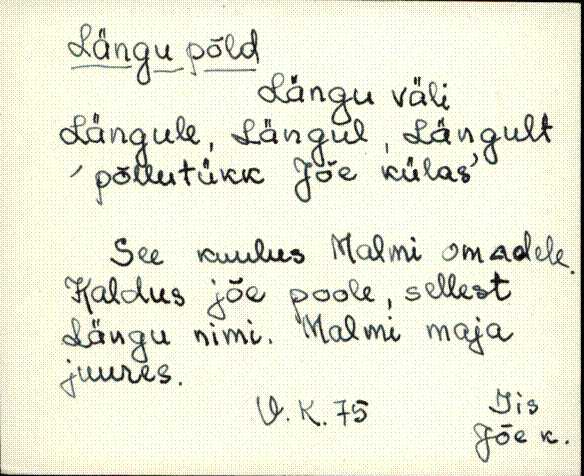 Längu põld
Längu väli
Längule, Längul, Längult
'põllutükk Jõe külas'
See kuulus Malmi omadele.
Kaldus jõe poole, sellest
Längu nimi. Malmi maja
juures.
V. K. 75
Iis
Jõe k.